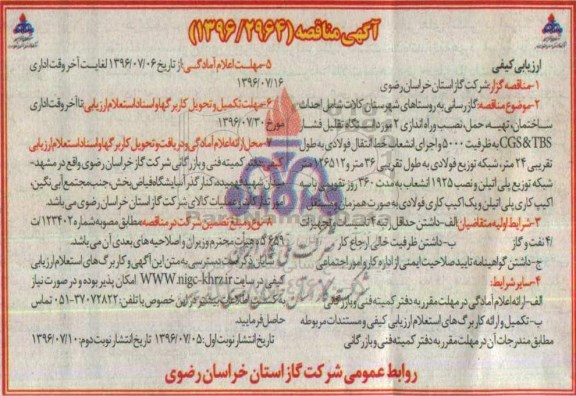 آگهی مناقصه (۱۳۹۶/۲۹۶۴)
ارزیابی کیفی
۱-مناقصه گزار: شرکت گاز استان خراسان رضوی
۲-موضوع مناقصه: گازرسانی به روستاهای شهرستان کلات شامل احداث
ساختمان، تهیه، حمل، نصب و راه اندازی ۲ مورد ایستگاه تقلیل فشار
CGS&TBS به ظرفیت ۵۰۰۰ و اجرای انشعاب خط انتقال فولادی به طول
تقریبی ۲۴ متر، شبکه توزیع فولادی به طول تقریبی ۳۶ متر و ۱۲۶۵۱۲ متر
شبکه توزیع پلی اتیلن و نصب ۱۹۲۵ انشعاب به مدت ۳۶۰ روز تقویمی با سه
اکیپ کاری پلی اتیلن و یک اکیپ کاری فولادی به صورت همزمان و مستقل
۳-شرایط اولیه متقاضیان: الف-داشتن حداقل رتبه ۴ تاسیسات و تجهیزات
/۴ نفت و گاز ب-داشتن ظرفیت خالی ارجاع کار
ج-داشتن گواهینامه تایید صلاحیت ایمنی از اداره کار و امور اجتماعی
۴-سایر شرایط:
الف-ارائه اعلام آمادگی در مهلت مقرر به دفتر کمیته فنی و بازرگانی
ب-تکمیل و ارائه کاربرگ های استعلام ارزیابی کیفی و مستندات مربوطه
مطابق مندرجات آن در مهلت مقرر به دفتر کمیته فنی و بازرگانی
۵-مهلت اعلام آمادگی: از تاریخ ۱۳۹۶/۰۷/۰۶ لغایت آخر وقت اداری
۱۳۹۶/۰۷/۱۶
۶-مهلت تکمیل و تحویل کاربرگها و اسناد استعلام ارزیابی: تا آخر وقت اداری
مورخ ۱۳۹۶/۰۷/۳۰
۷- محل ارائه اعلام آمادگی و دریافت و تحویل کاربرگها و اسناد استعلام ارزیابی
کیفی: دفتر کمیته فنی و بازرگانی شرکت گاز خراسان رضوی واقع در مشهد-
خیابان شهید فهمیده، کنار گذر آبیاشگاه فیاض بخش، جنب مجتمع آبی نگین،
امور تدارکات و عملیات کالای شرکت گاز استان خراسان رضوی می باشد
۸-نوع و مبلغ تضمین شرکت در مناقصه: مطابق مصوبه شماره ۱۲۳۴۰۲/ت
۵۰۶۵۹ه هیات محترم وزیران و اصلاحیه های بعدی آن می باشد.
شایان ذکر است دسترسی به متن این آگهی و کاربرگ های استعلام ارزیابی
کیفی در سایت WWW.nigc-khrz.ir امکان پذیر بوده و در صورت نیاز
به کسب اطلاعات بیشتر در این خصوص با تلفن: ۳۷۰۷۲۸۲۲-۰۵۱ تماس
حاصل فرمایید.
تاریخ انتشار نوبت اول: ۱۳۹۶/۰۷/۰۵ تاریخ انتشار نوبت دوم: ۱۳۹۶/۰۷/۱۰
روابط عمومی شرکت گاز استان خراسان رضوی